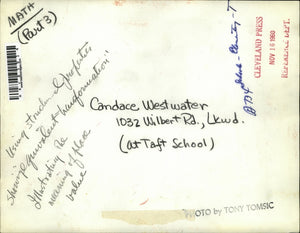 MATH
(Part 3)
CLEVELAND PRESS
NOV 16 1960
REFERENCE DEPT.
Candace Westwater
1032 Wilbert Rd., Lkwd.
(at Taft School)
Using structure & properties
showing equivalent transformation"
Illustrating the
meaning of place
value
PHOTO by TONY TOMSIC